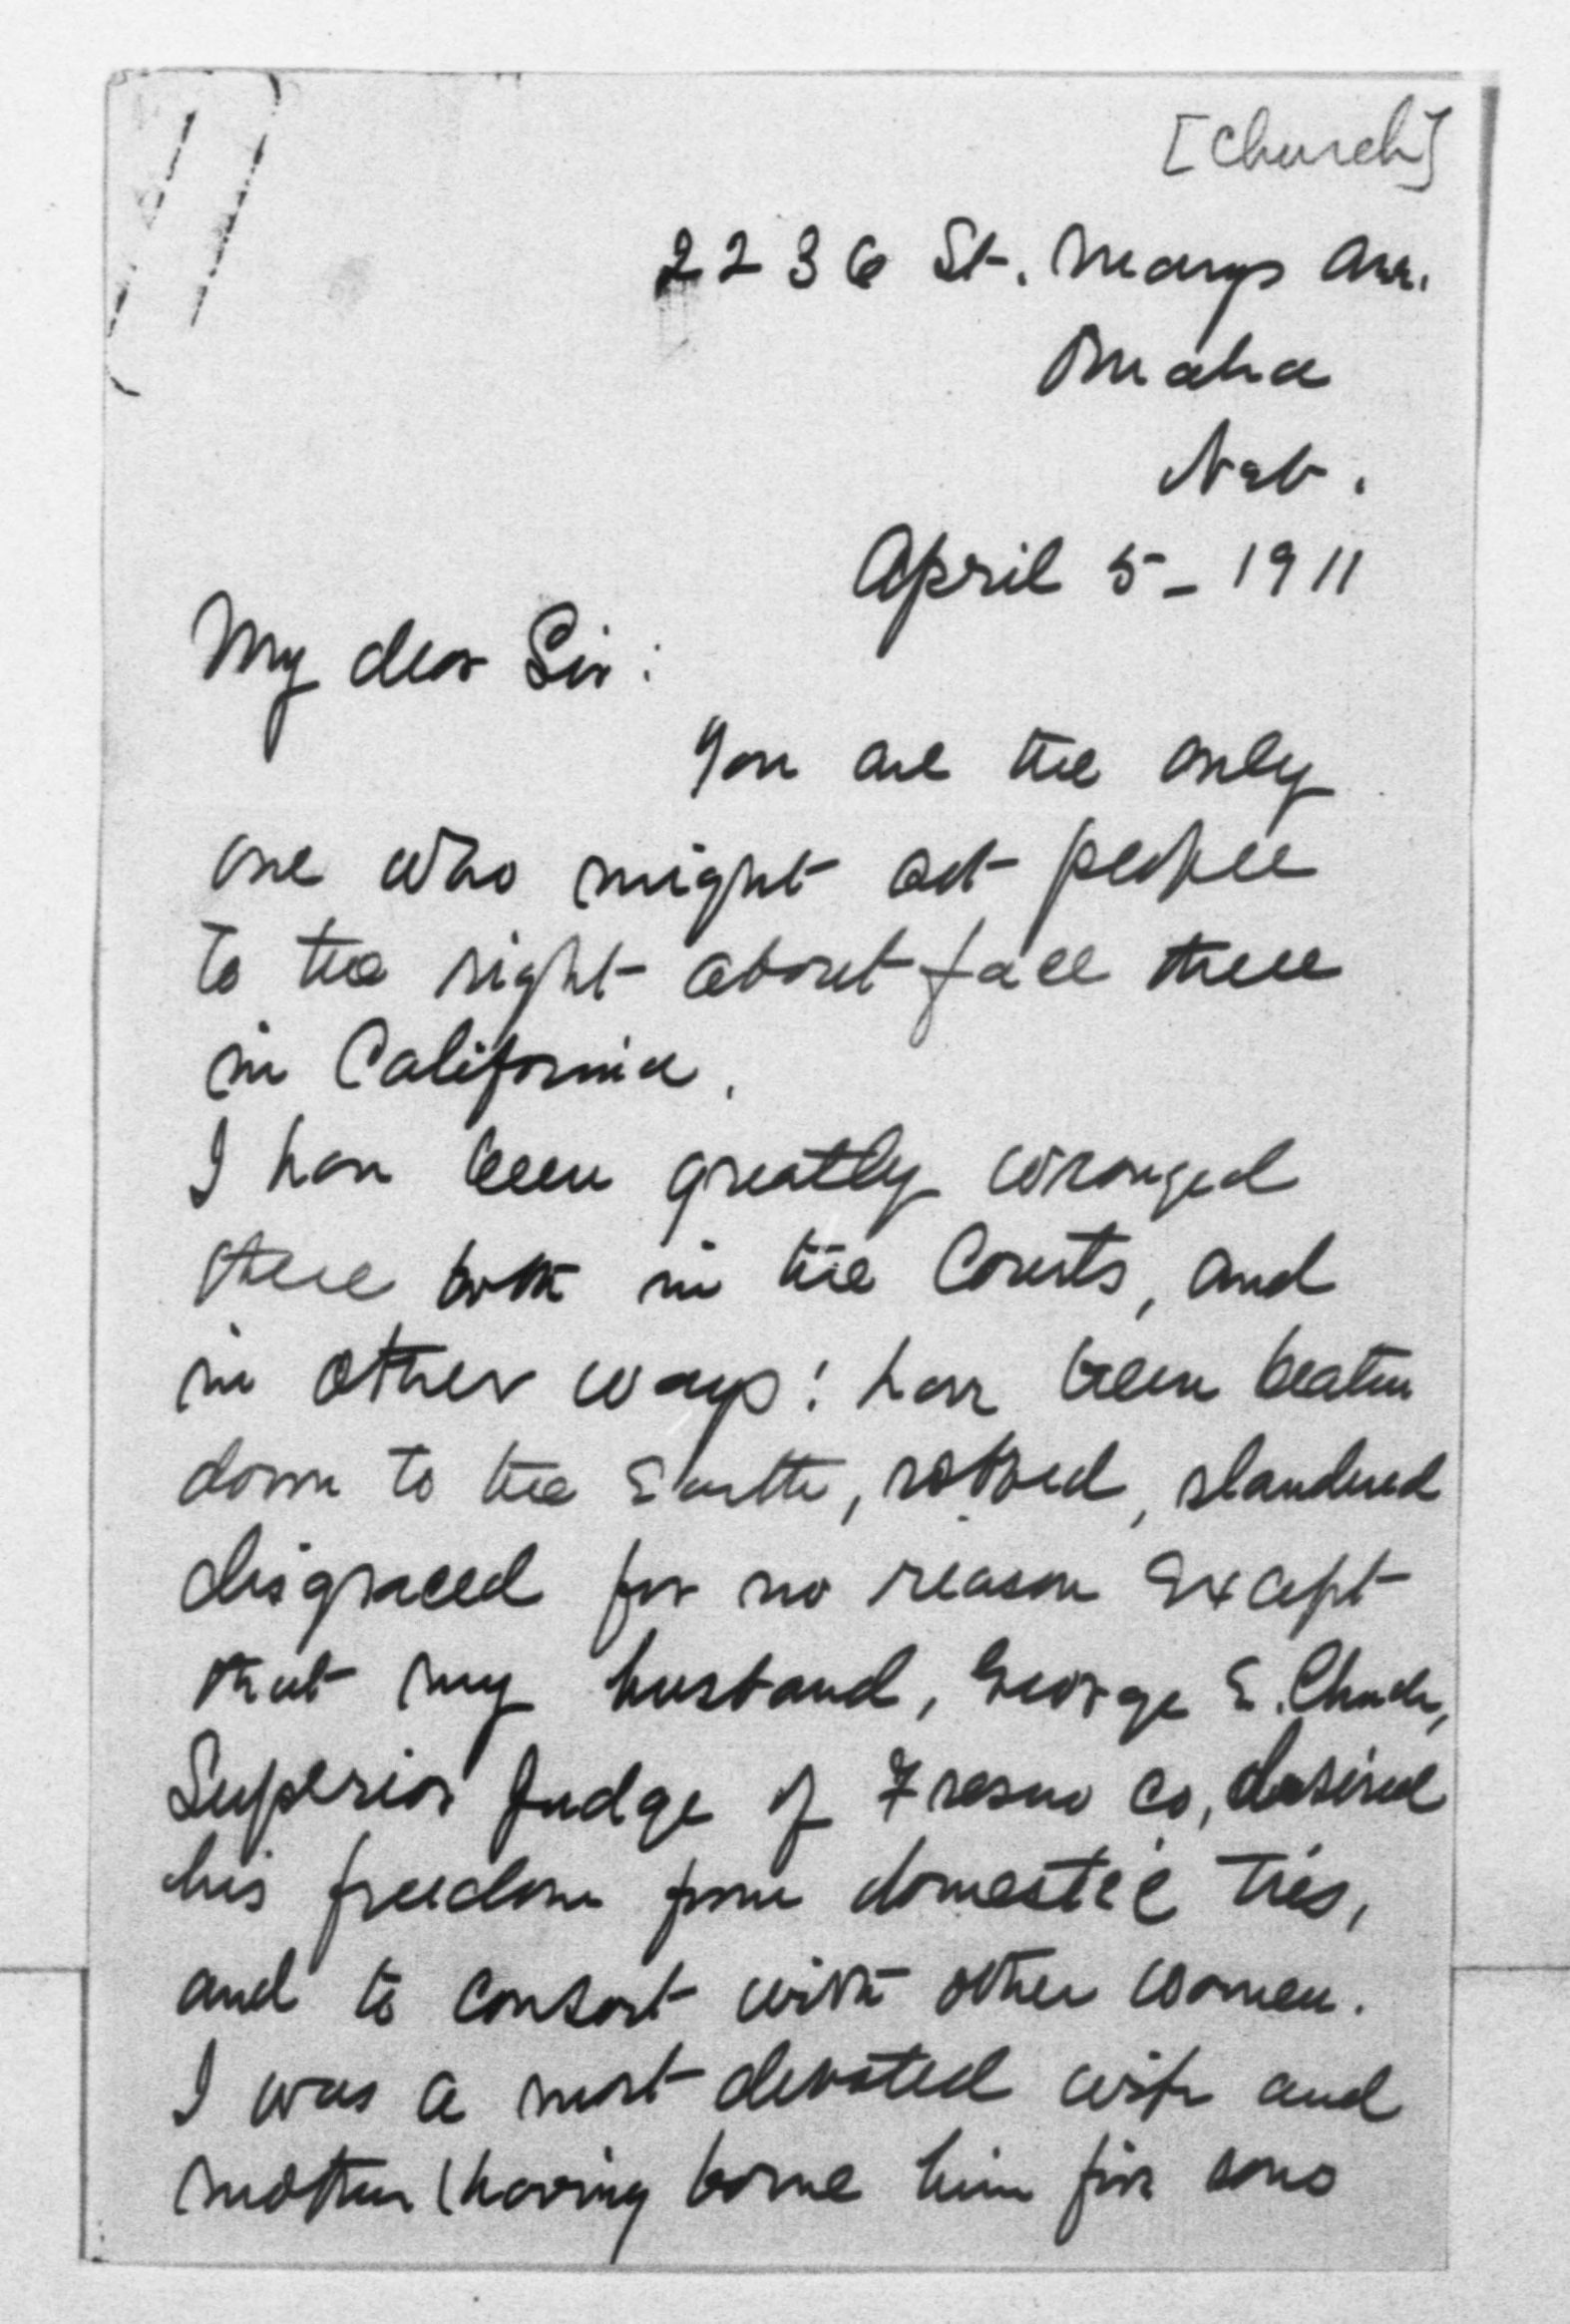 [Church]
2236 St. Marys Ave.
Omaha
Neb.
April 5 - 1911
My dear Sir:
You are the only
one who might set people
to the right about face there
in California.
I have been greatly wronged
there both in the Courts, and
in other ways: have been beaten
down to the Earth, robbed, slandered
disgraced for no reason Except
that my husband, George E. Church,
Superior Judge of Fresno Co, desired
his freedom from domestic ties,
and to consort with other women.
I was a most devoted wife and
mother (having borne him five sons